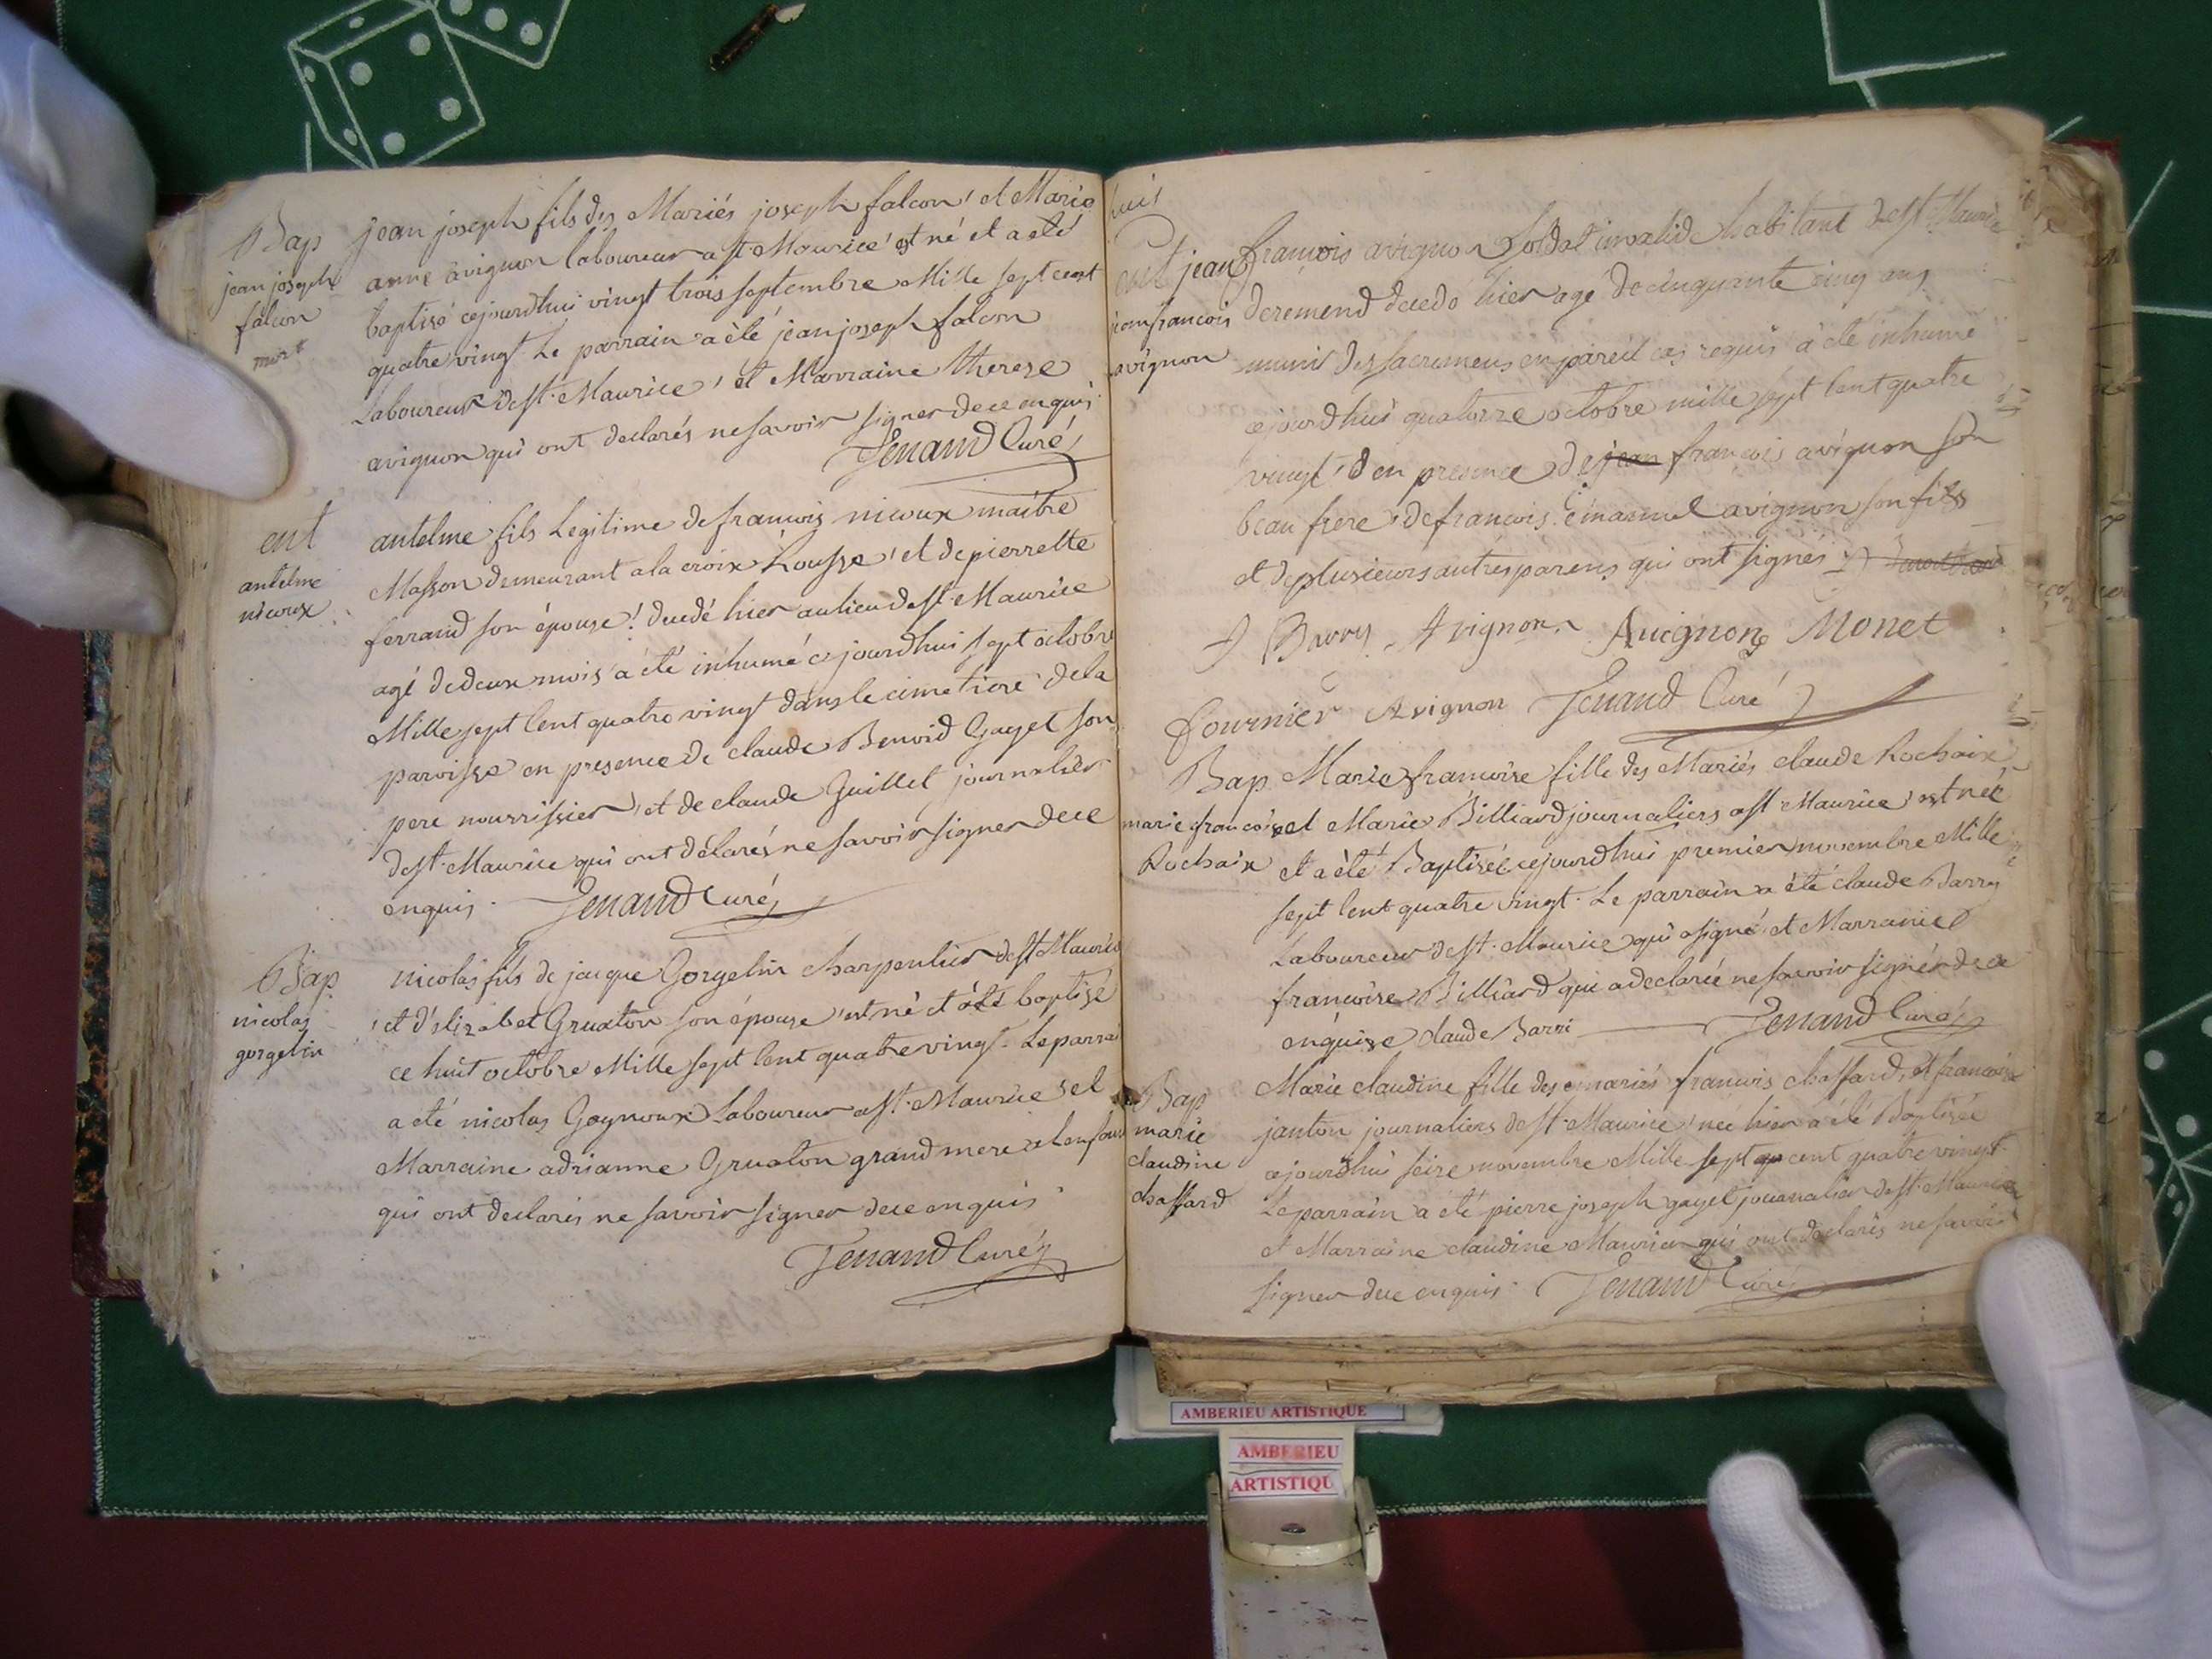 Bap
jean joseph
falcon
mort
jean joseph fils des Mariés joseph falcon et Marie
anne avignon laboureur a st Maurice est né et a eté
baptisé cejourdhui vingt trois septembre Mille sept cent
quatre vingt. Le parrain a èté jean joseph falcon
Laboureur de st. Maurice, et Marraine therese
avignon qui ont declarés ne savoir signer de ce enquis.
Tenand Curé
ent
antelme
nicoux
antelme fils Legitime de francois nicoux maitre
Masson demeurant a la croix Rousse, et de pierrette
ferrand son épouse, decedé hier au lieu de st. Maurice
agé de deux mois a été inhumé cejourdhui sept octobre
Mille sept Cent quatre vingt dans le cimetiere de la
paroisse en presence de claude Benoid Gayet son
pere nourrissier, et de claude Guillet journalier
de st. Maurice qui ont déclarés ne savoir signer de ce
enquis. Tenand Curé
Bap
nicolas
gorgelin
nicolas fils de jacque Gorgelin charpentier de st Maurice
et d'elizabet Gruaton son épouse, est né et a èté baptisé
ce huit octobre Mille sept Cent quatre vingt. Le parrai
a eté nicolas Gagnoux Laboureur a st. Maurice et
Marraine adrianne Gruaton grand mere a lenfant
qui ont declarés ne savoir signer de ce enquis
Tenand Curé
huis
Ent
jean francois
avignon
jean francois avignon Soldat invalide habitant de st Maurice
de remend decedé hier agé de cinquante cinq ans
muni des sacremens en pareil cas requis a èté inhumé
cejourdhui quatorze octobre mille sept Cent quatre
vingt, en presence de jean francois avignon son
beau frere, de francois Emanuel avignon son fils
et de plusieurs autres parens qui ont signés
J Barry Avignon Avignon Monet
fournier Avignon Tenand Curé
Bap
marie francoise
Rochaix
Marie francoise fille des Mariés claude Rochaix
et Marie Billiard journaliers a st Maurice, est née
et a èté Baptisée cejourdhui premier novembre Mille
sept Cent quatre vingt. Le parrain a èté claude Barry
Laboureur de st. Maurice qui a signé et Marraine
francoise Billiard qui a declarée ne savoir signer de ce
enquise claude Barri Tenand Curé
Bap
marie
claudine
chaffard
Marie claudine fille des mariés francois chaffard, et francoise
janton journaliers de st. Maurice, née hier a èté Baptisée
cejourdhui seize novembre Mille sept cent quatre vingt.
Le parrain a èté pierre joseph gayet journalier de st. Maurice
et Marraine claudine Maurier qui ont declarés ne savoir
signer de ce enquis. Tenand Curé
AMBERIEU ARTISTIQUE
AMBERIEU
ARTISTIQU